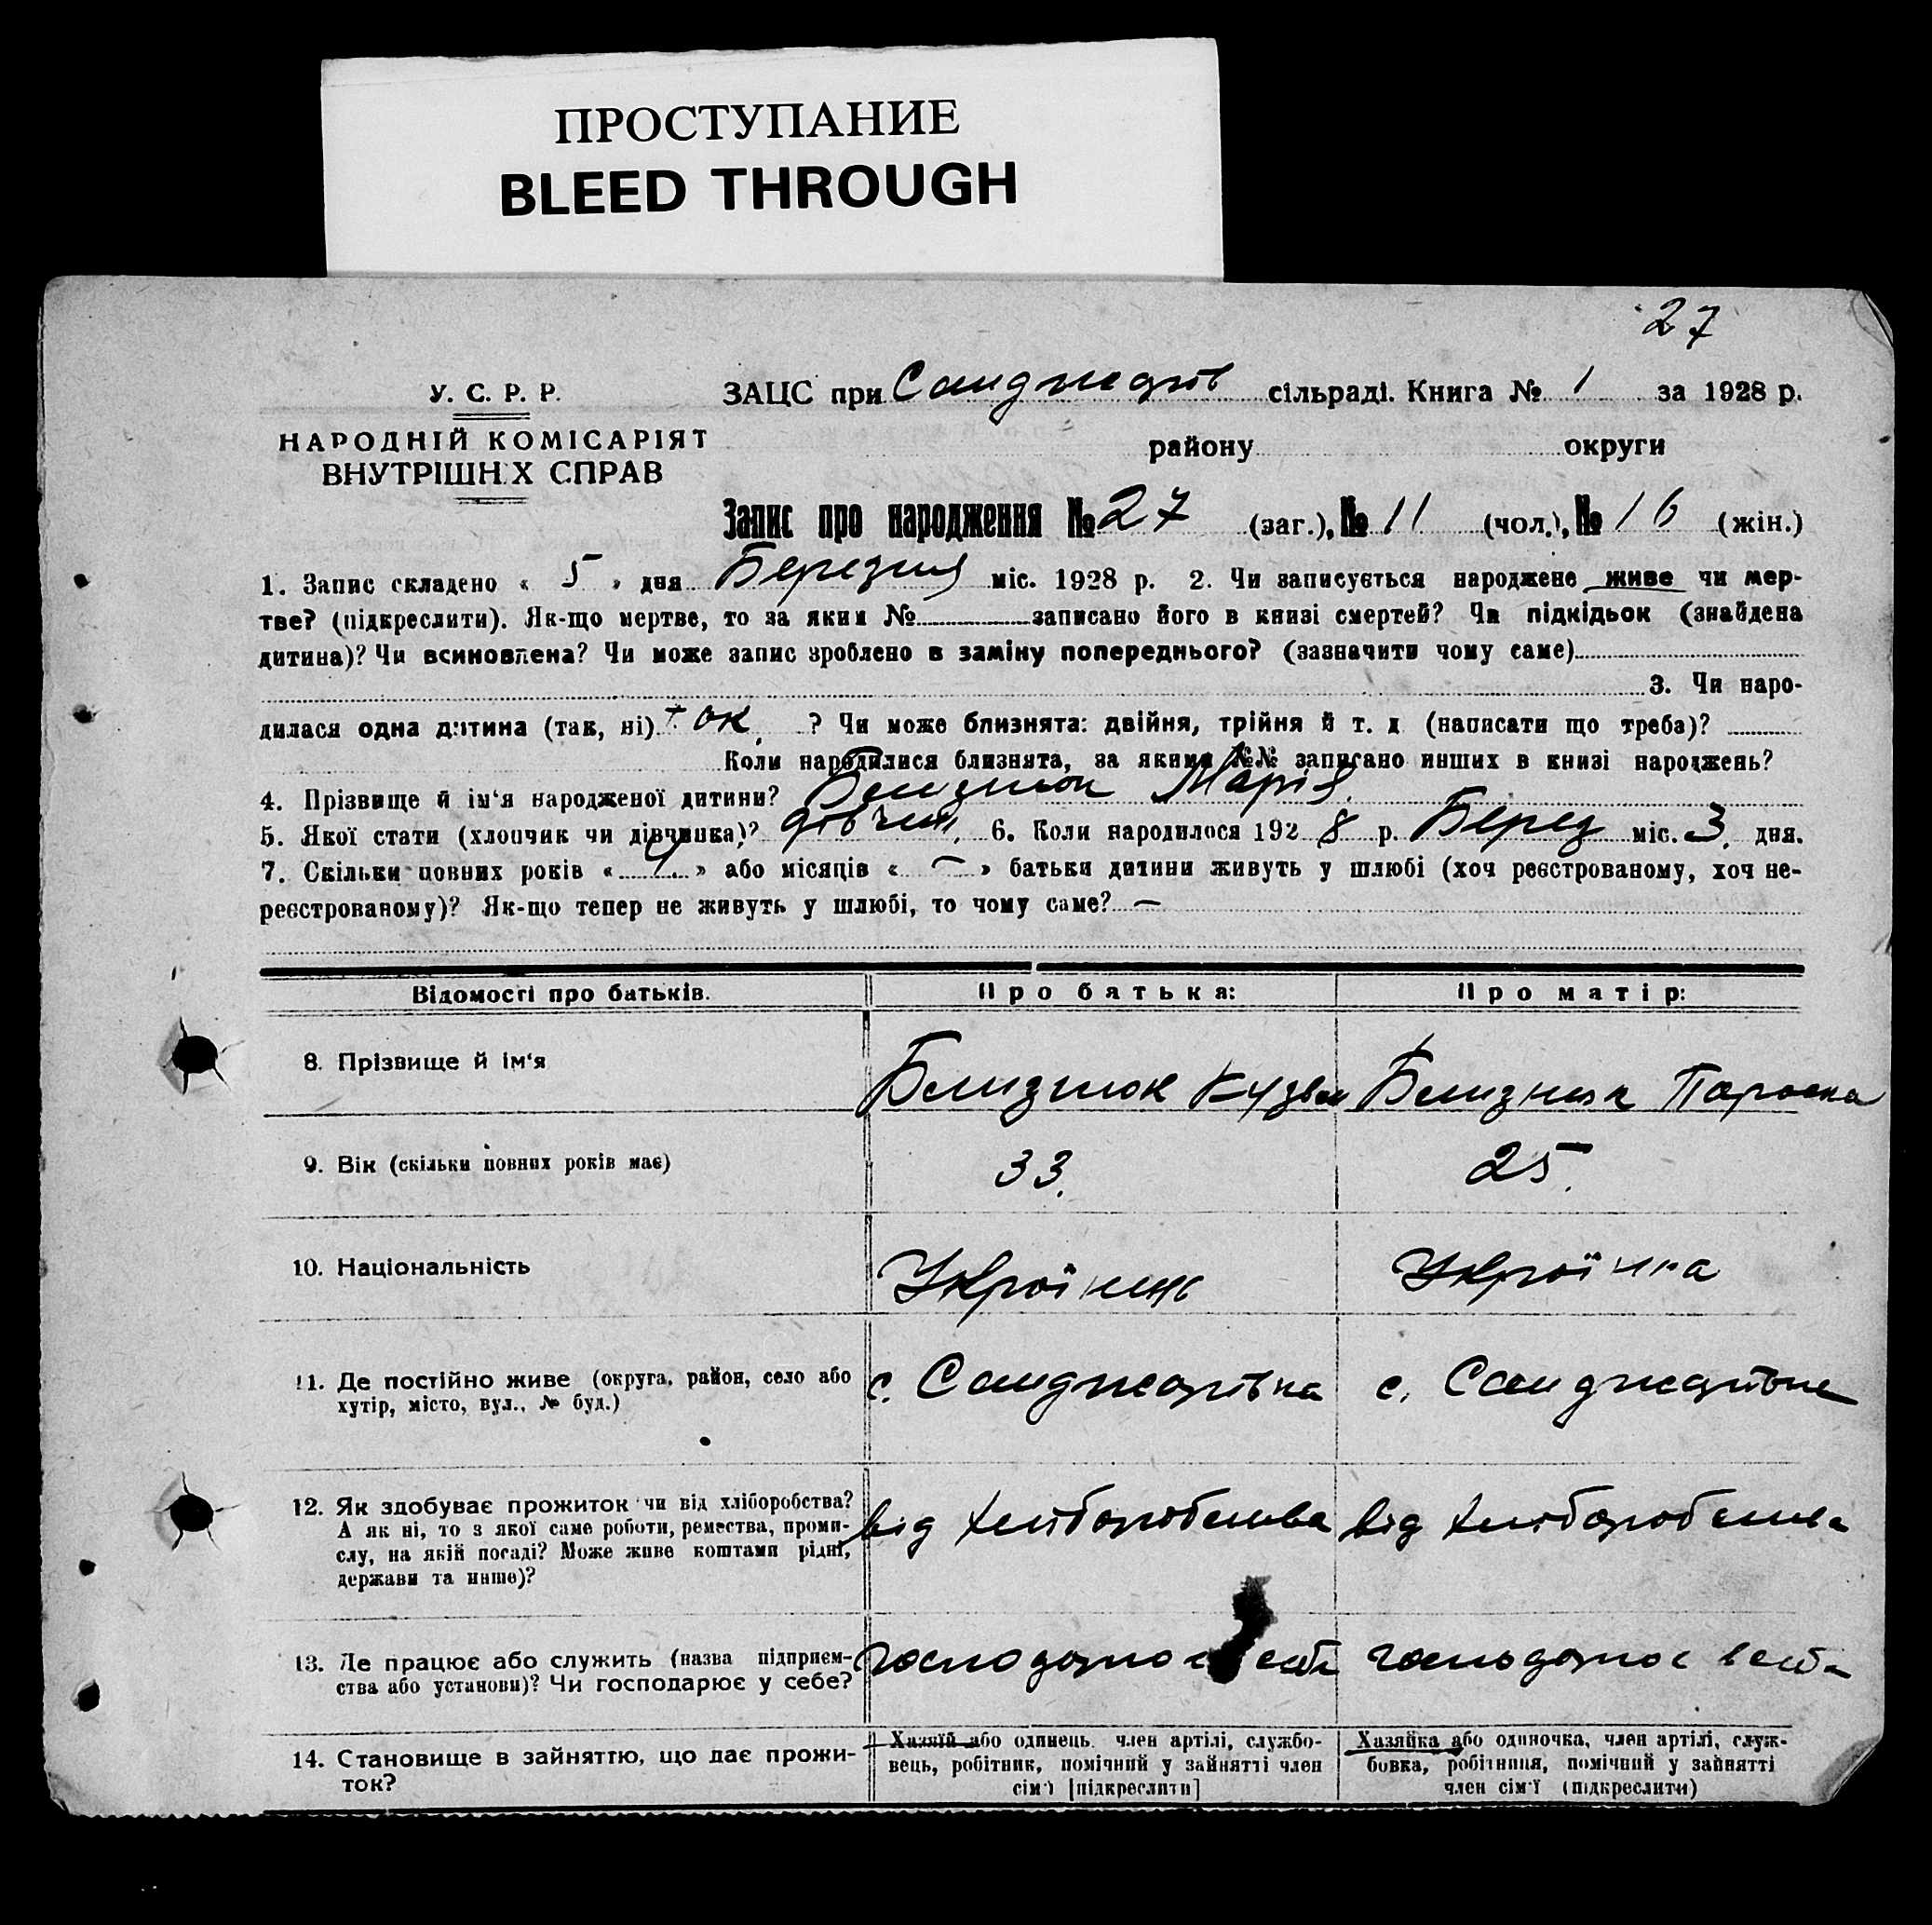 ПРОСТУПАНИЕ
BLEED THROUGH
27
У. С. Р. Р.
НАРОДНІЙ КОМІСАРІЯТ
ВНУТРІШНІХ СПРАВ
ЗАЦС при Санджарів сільраді. Книга № 1 за 1928 р.
району округи
Запис про народження № 27 (заг.), № 11 (чол.), № 16 (жін.)
1. Запис складено « 5 » дня Березня міс. 1928 р. 2. Чи записується народжене живе чи мер-
тве? (підкреслити). Як-що мертве, то за яким № записано його в книзі смертей? Чи підкідьок (знайдена
дитина)? Чи всиновлена? Чи може запис зроблено в заміну попереднього? (зазначити чому саме)
3. Чи наро-
дилася одна дитина (так, ні) так ? Чи може близнята: двійня, трійня й т. д (написати що треба)?
Коли народилися близнята, за якими №№ записано инших в книзі народжень?
4. Прізвище й ім‘я народженої дитини? Близнюк Марія
5. Якої стати (хлопчик чи дівчинка)? дівчин. 6. Коли народилося 1928 р. Берез міс. 3. дня.
7. Скільки повних років « 4 » або місяців « — » батьки дитини живуть у шлюбі (хоч реєстрованому, хоч не-
реєстрованому)? Як-що тепер не живуть у шлюбі, то чому саме? —
Відомості про батьків. Про батька: Про матір:
8. Прізвище й ім‘я Близнюк Кузьм Близнюк Параска
9. Вік (скільки повних років має) 33. 25.
10. Національність Українець Українка
11. Де постійно живе (округа, район, село або
хутір, місто, вул., № буд.) с. Санджарівка с. Санджарівка
12. Як здобуває прожиток чи від хліборобства?
А як ні, то з якої саме роботи, ремества, проми-
слу, на якій посаді? Може живе коштами рідні,
держави та инше)? від хліборобства від хліборобства
13. Де працює або служить (назва підприєм-
ства або установи)? Чи господарює у себе? господарює в себе господарює в себе
14. Становище в зайняттю, що дає прожи-
ток?
Хазяїй або одинець, член артілі, службо-
вець, робітник, помічний у зайнятті член
сім‘ї [підкреслити]
Хазяйка або одиночка, член артілі, служ-
бовка, робітниця, помічний у зайнятті
член сім‘ї (підкреслити)